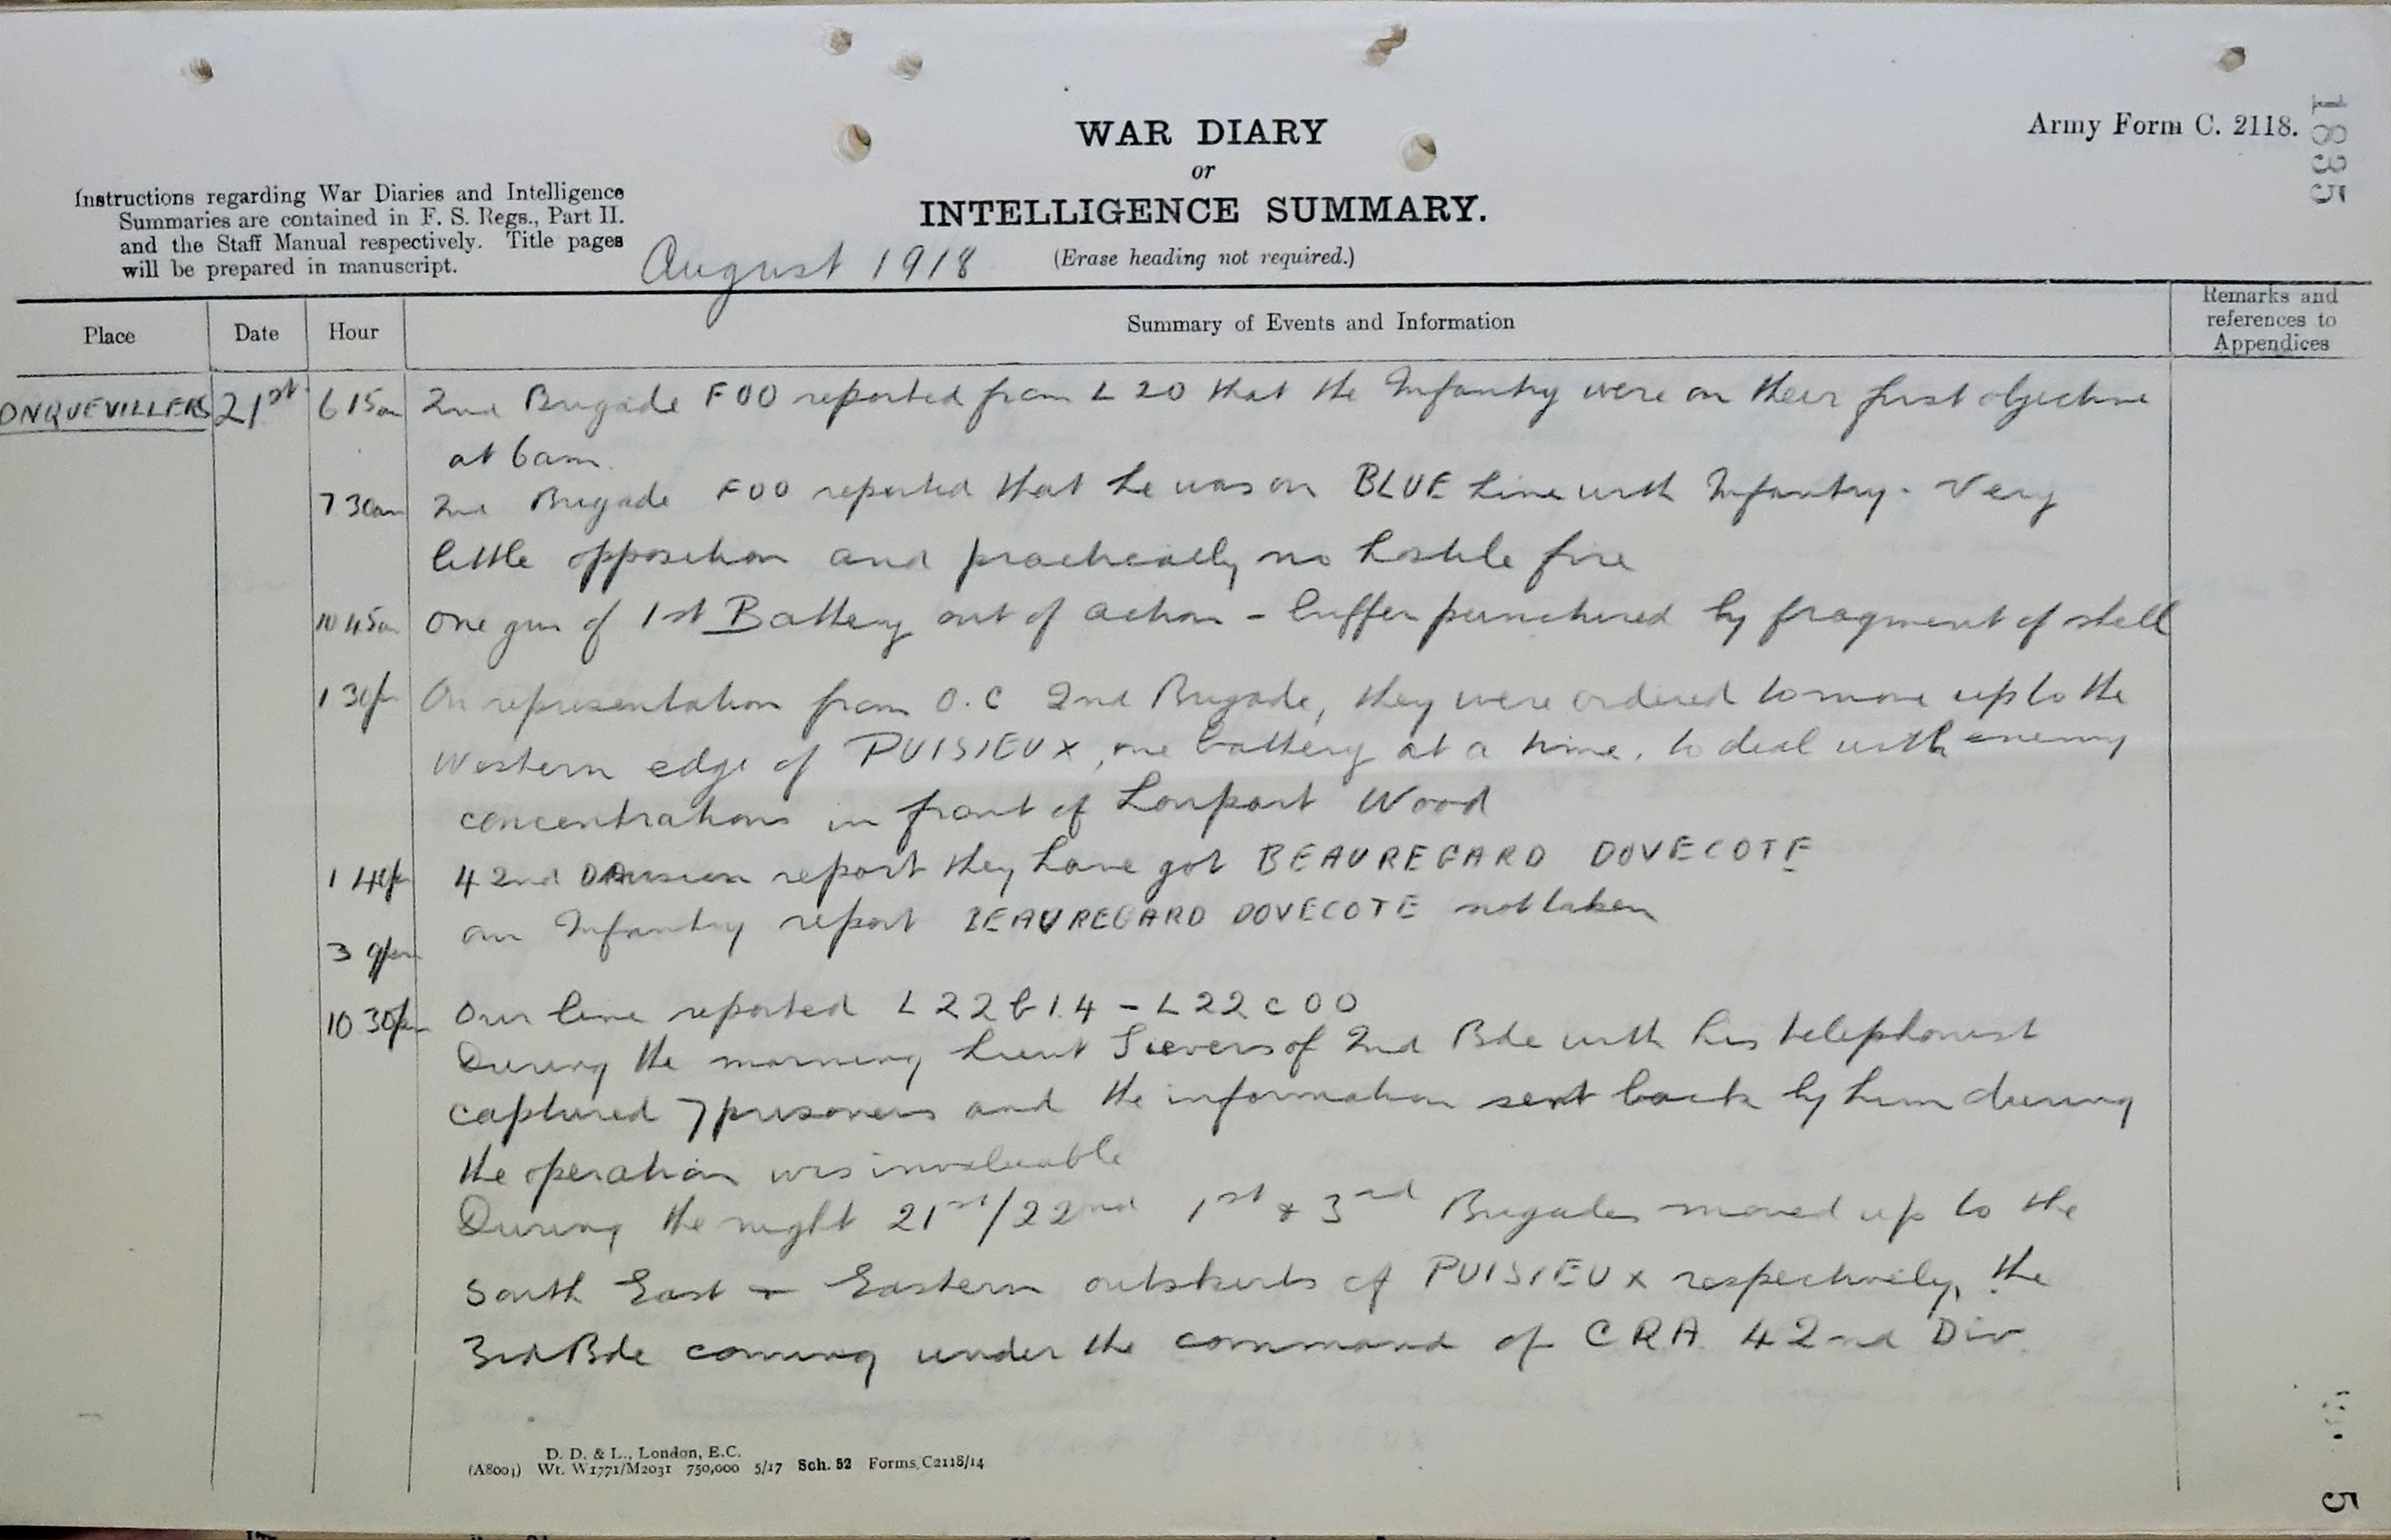 WAR DIARY
or
INTELLIGENCE SUMMARY.
(Erase heading not required.)
Army Form C. 2118.
1835
Instructions regarding War Diaries and Intelligence
Summaries are contained in F. S. Regs., Part II.
and the Staff Manual respectively. Title pages
will be prepared in manuscript.
August 1918
Place Date Hour Summary of Events and Information Remarks and
references to
Appendices
ONQUEVILLERS 21st 6 15am 2nd Brigade FOO reported from L 20 that the Infantry were on their first objective
at 6am.
7 30am 2nd Brigade FOO reported that he was on BLUE line with Infantry. Very
little opposition and practically no hostile fire
10 45am One gun of 1st Battery out of action - buffer punctured by fragment of shell
1 30pm On representation from O.C 2nd Brigade, they were ordered to move up to the
Western edge of PUISIEUX, one battery at a time, to deal with enemy
concentrations in front of Loupart Wood
1 40pm 42nd Division report they have got BEAUREGARD DOVECOTE
3 9pm an Infantry report BEAUREGARD DOVECOTE not taken
10 30pm Our line reported L 22 b 1.4 - L 22 c 00
During the morning Lieut Sievers of 2nd Bde with his telephonist
captured 7 prisoners and the information sent back by him during
the operation was invaluable
During the night 21st/22nd 1st & 3rd Brigades moved up to the
South East & Eastern outskirts of PUISIEUX respectively, the
3rd Bde coming under the command of CRA 42nd Div.
D. D. & L., London, E.C.
(A8001) Wt. W1771/M2031 750,000 5/17 Sch. 52 Forms C2118/14
5